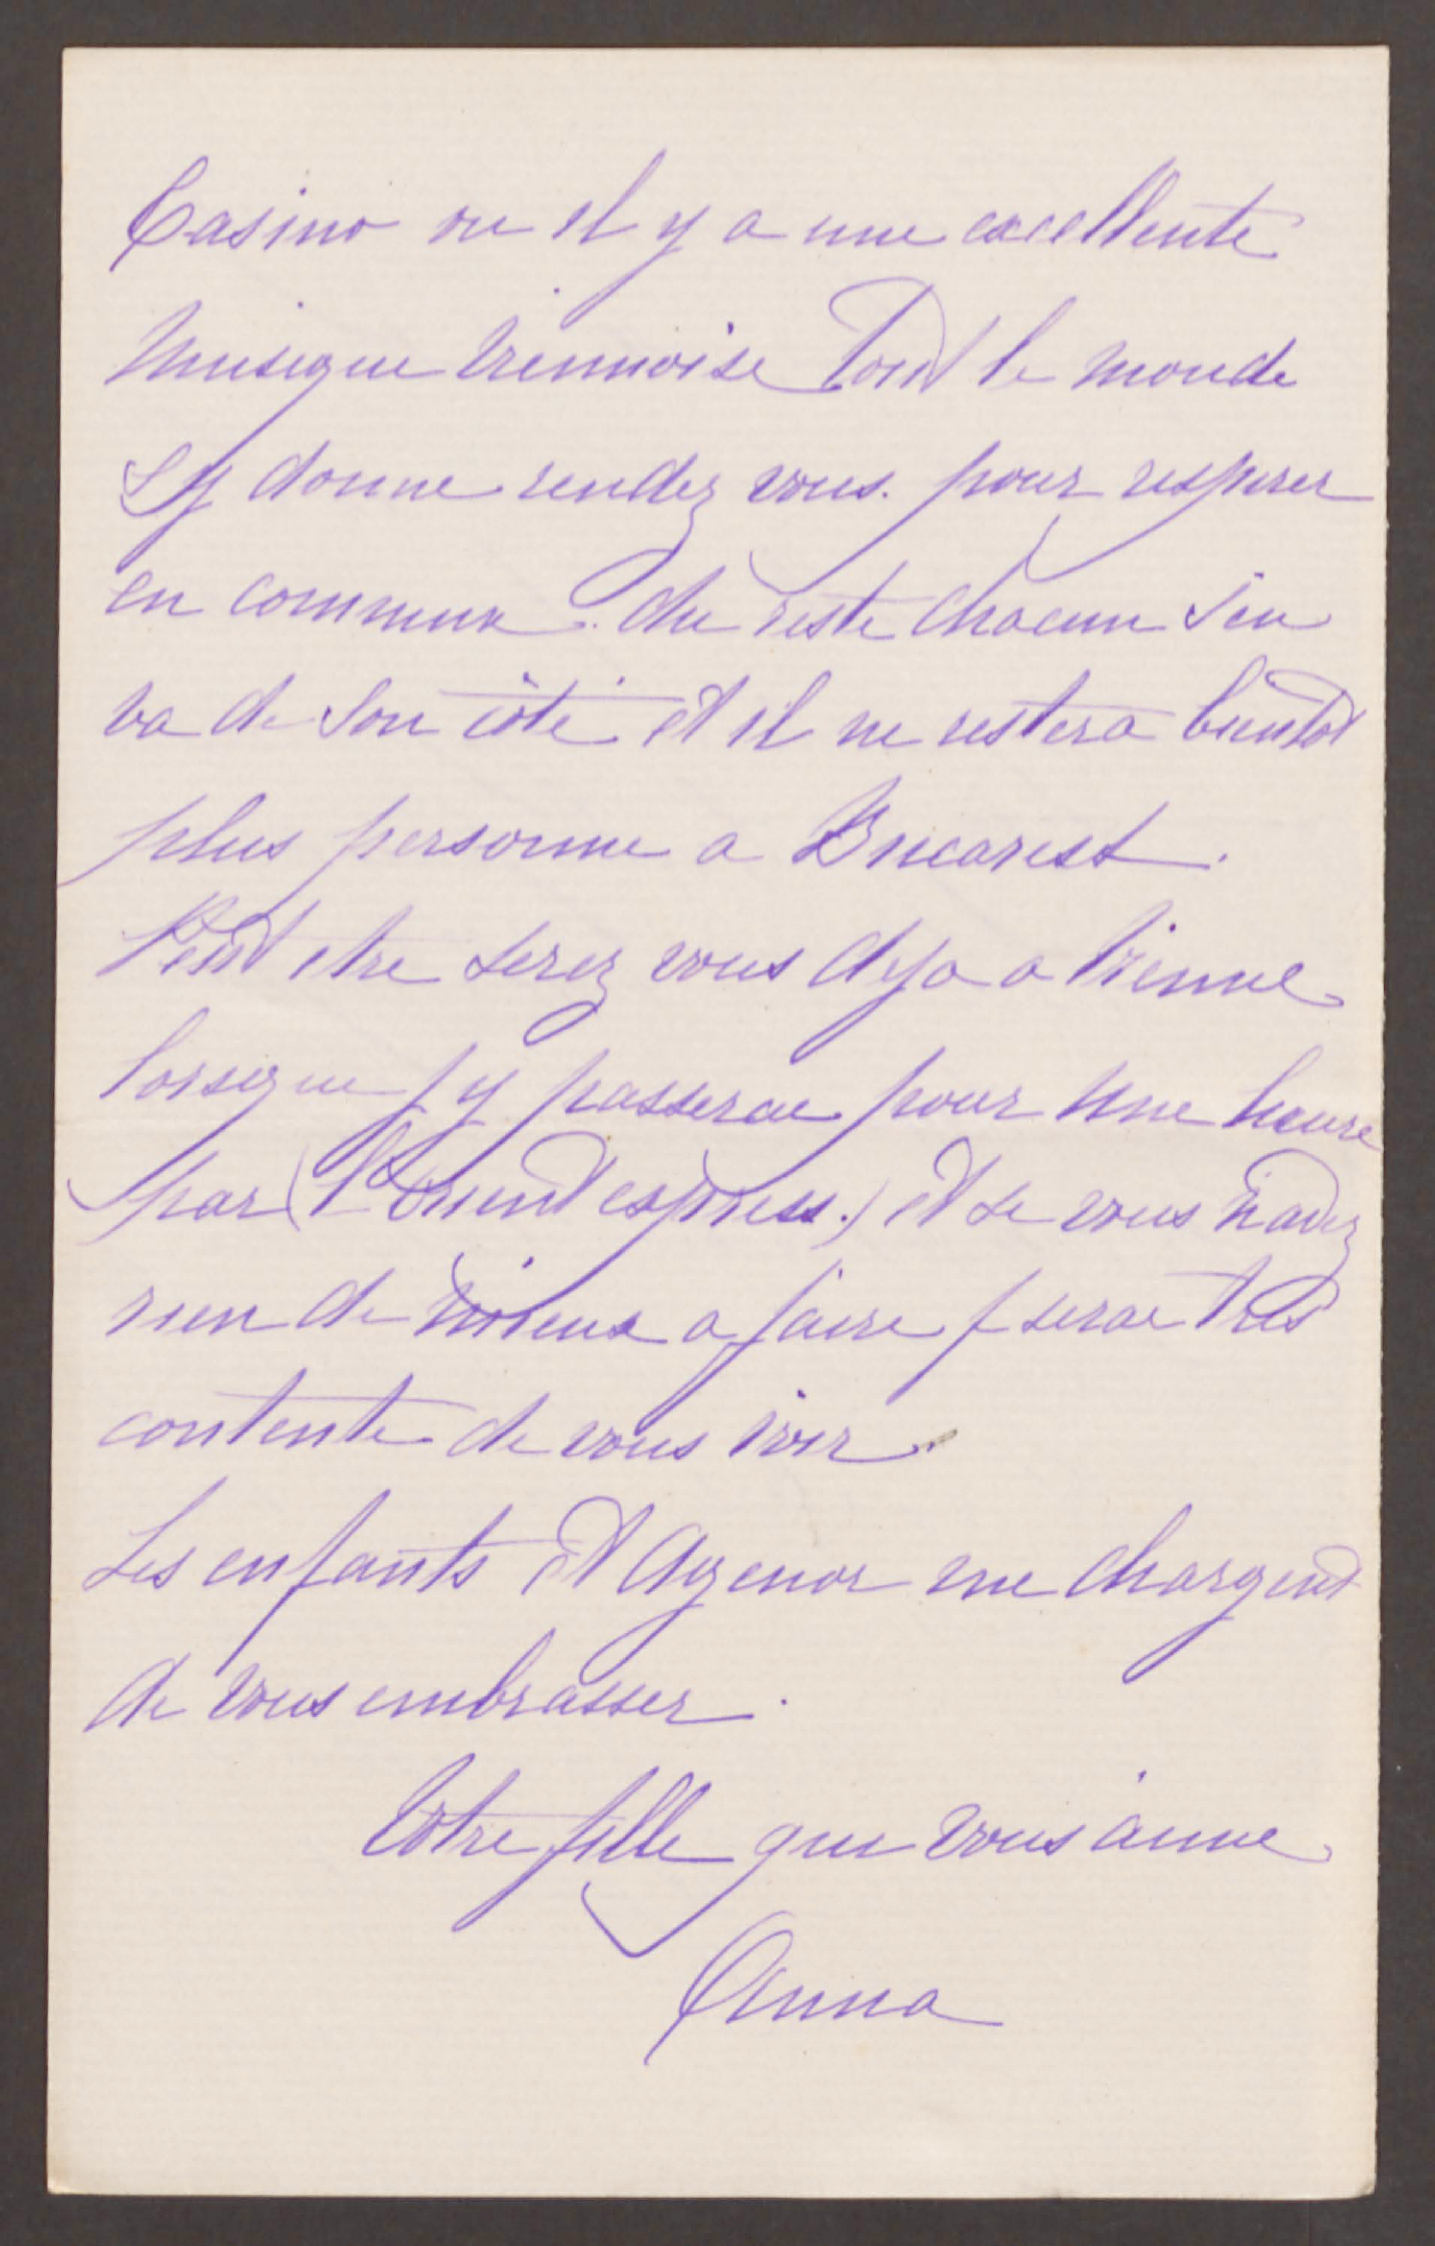 Casino ou il y a une excellente
Musique Viennoise Tout le monde
s'y donne rendez vous. pour respirer
en commun. du reste chacun s'en
va de son côté et il ne restera bientot
plus personne a Bucarest.
Peut etre serez vous deja a Vienne
lorsque j'y passerai pour une heure
par (l'Orient express.) et si vous n'avez
rien de mieux a faire je serai très
contente de vous voir.
Les enfants et Agenor me chargent
de vous embrasser.
Votre fille qui vous aime
Anna